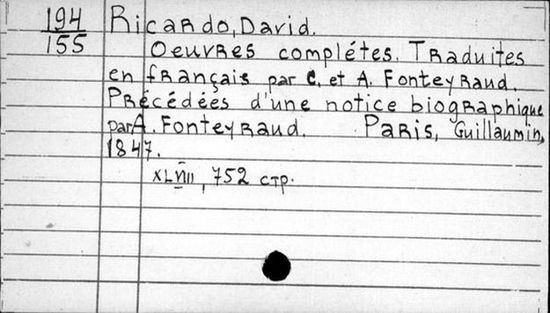 194
155
Ricardo, David.
Oeuvres complétes. Traduites
en français par C. et A. Fonteyraud.
Précédées d'une notice biographique
par A. Fonteyraud. Paris, Guillaumin,
1847.
XLVIII, 752 стр.